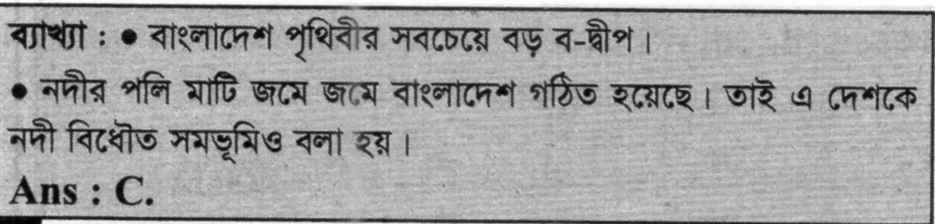 ব্যাখ্যা : ● বাংলাদেশ পৃথিবীর সবচেয়ে বড় ব-দ্বীপ।
● নদীর পলি মাটি জমে জমে বাংলাদেশ গঠিত হয়েছে। তাই এ দেশকে
নদী বিধৌত সমভূমিও বলা হয়।
Ans : C.